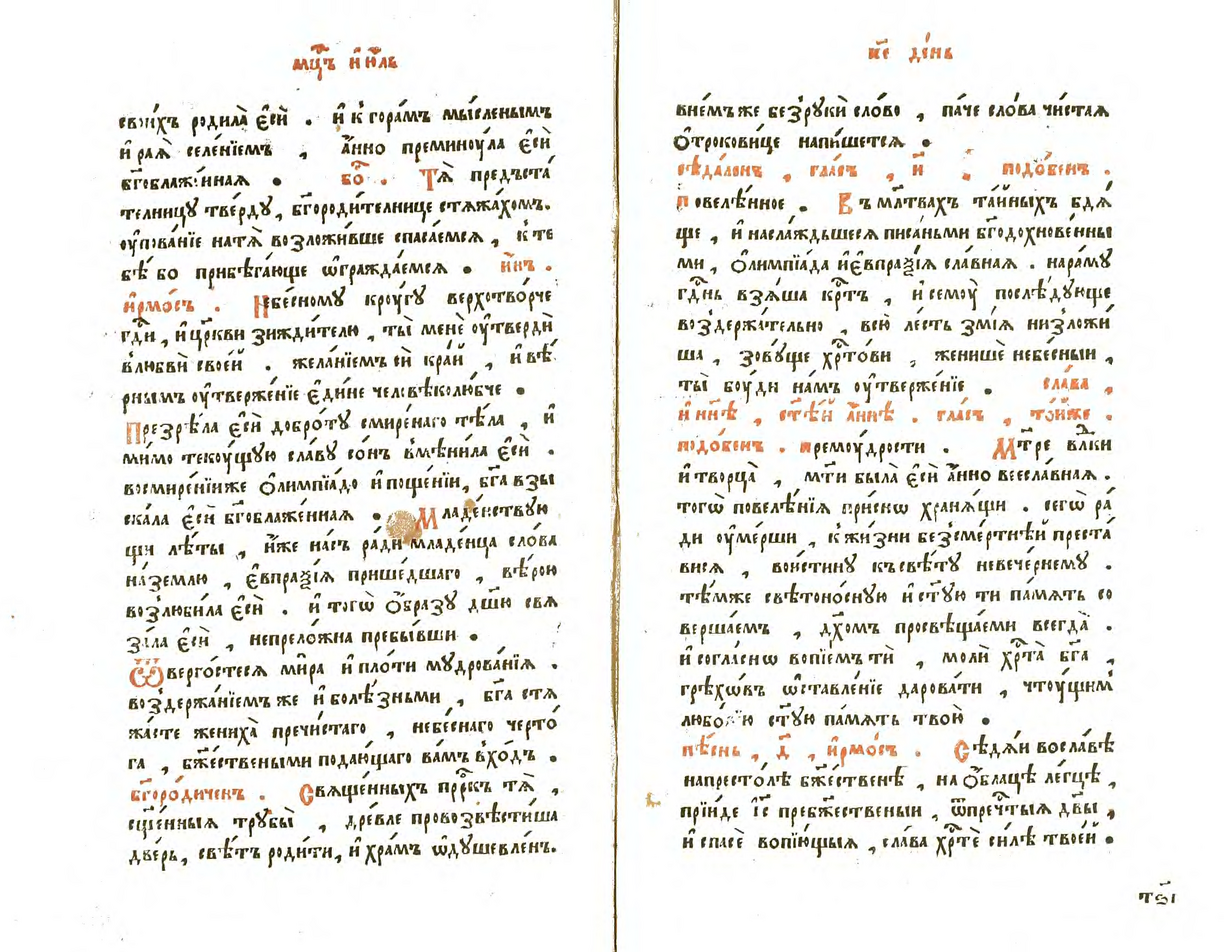 мц҃ъ і҆ю́ль
свои́хъ родила̀ є҆сѝ . и҆ к̾ гора́мъ мы́сленымъ
и҆ рая̀ селе́нїемъ , а҆́нно премину́ла є҆сѝ
бг҃облаже́нная . бо҃ . Тѧ̀ предъста́
телницу тве́рду, бг҃ороди́телнице стѧжа́хомъ.
оу҆пова́нїе на тѧ̀ возложи́вше спаса́емсѧ , к̾ те
бѣ́ бо прибѣга́юще ѡ҆гражда́емсѧ . и҆́нъ .
і҆рмо́съ . Небе́сному кро́угу верхотво́рче
гдⷭ҇и , и҆ цр҃кви зижди́телю , ты̀ менѐ оу҆твердѝ
в̾ любвѝ свое́й . жела́нїемъ сѝ кра́й , и҆ вѣ́
рнымъ оу҆твержє́нїе є҆ди́не человѣколю́бче .
Презрѣ́ла є҆сѝ добро́ту смире́наго тѣ́ла , и҆
мимо текоу́щую сла́ву со́нъ в̾мѣни́ла є҆сѝ .
восмире́нїи же ѻ҆лимпїа́до и҆ поще́нїи, бг҃а взы
ска́ла є҆сѝ бг҃облаже́нная . Младе́нствую
щи лѣ́ты , и҆́же на́съ ра́ди младе́нца сло́ва
на́ землю , є҆впраѯі́ѧ прише́дшаго , вѣ́рою
возлюби́ла є҆сѝ . и҆ того̀ ѻ҆́бразу дш҃ю свѧ
за́ла є҆сѝ , непрело́жна пребы́вши .
Ѿверго́стесѧ ми́ра и҆ пло́ти мудрова́нїѧ .
воздержа́нїемъ же и҆ болѣ́зными , бг҃а стѧ
жа́сте жениха̀ пречи́стаго , небе́снаго черто́
га , бж҃ествеными подаю́щаго ва́мъ в̾хо́дъ .
бг҃оро́диченъ . Свѧще́нныхъ прⷪ҇ркъ тѧ̀ ,
сщ҃е́нныѧ трубы̀ , дре́вле провозвѣсти́ша
две́рь, свѣ́тъ роди́ти, и҆ хра́мъ ѡ҆душевле́нъ.
к҃е де́нь
вне́мъ же без̾ рукѝ сло́во , па́че сло́ва чи́стаѧ
ѻ҆трокови́це напи́шетсѧ .
сѣда́ленъ , гла́съ , и҃ . подо́бенъ .
повелѣ́нное . Въ мл҃твахъ та́йныхъ бдѧ́
ще , и҆ наслажда́шесѧ писа́ньми бг҃одохнове́нны
ми , ѻ҆лимпїа́да и҆ є҆впраѯі́ѧ сла́вная . на ра́му
гдⷭ҇нь взѧ́ша крⷭ҇тъ , и҆ семоу̀ послѣ́дующе
воздержа́тельно , всю̀ ле́сть змі́ѧ низложи́
ша , зову́ще хрⷭ҇то́ви , женишѐ небе́сныи ,
ты̀ боу́ди на́мъ оу҆тверже́нїе . сла́ва ,
и҆ нн҃ѣ , ст҃ѣ́й а҆́ннѣ . гла́съ , то́йже .
подо́бенъ . премоу́дрости . Мт҃ре влⷣки
и҆ творца̀ , мт҃и была̀ є҆сѝ а҆́нно всесла́вная .
того̀ повелѣ́нїѧ при́сно хранѧ́щи . сего̀ ра́
ди оу҆ме́рши , к̾ жи́зни безсме́ртнѣй преста́
висѧ , вои́стину къ свѣ́ту невече́рнему .
тѣ́мже свѣтоно́сную и҆ ст҃у́ю ти па́мѧть со
верша́емъ , дх҃омъ просвѣща́еми всегда̀ .
и҆ согла́сно вопїе́мъ тѝ , молѝ хрⷭ҇та̀ бг҃а ,
грѣхо́въ ѡ҆ставле́нїе дарова́ти , чтоу́щимъ
любо́вїю ст҃у́ю па́мѧть твою̀ .
пѣ́снь , д҃ , і҆рмо́съ . Сѣдѧ́и во сла́вѣ
на престо́лѣ бжⷭ҇ественѣ , на ѻ҆́блацѣ ле́гцѣ ,
прїи́де і҆с҃ пребж҃ественыи , ѿ пречⷭ҇тыѧ дв҃ы ,
и҆ спасѐ вопїю́щыѧ , сла́ва хрⷭ҇тѐ си́лѣ твое́й .
тѕ҃і